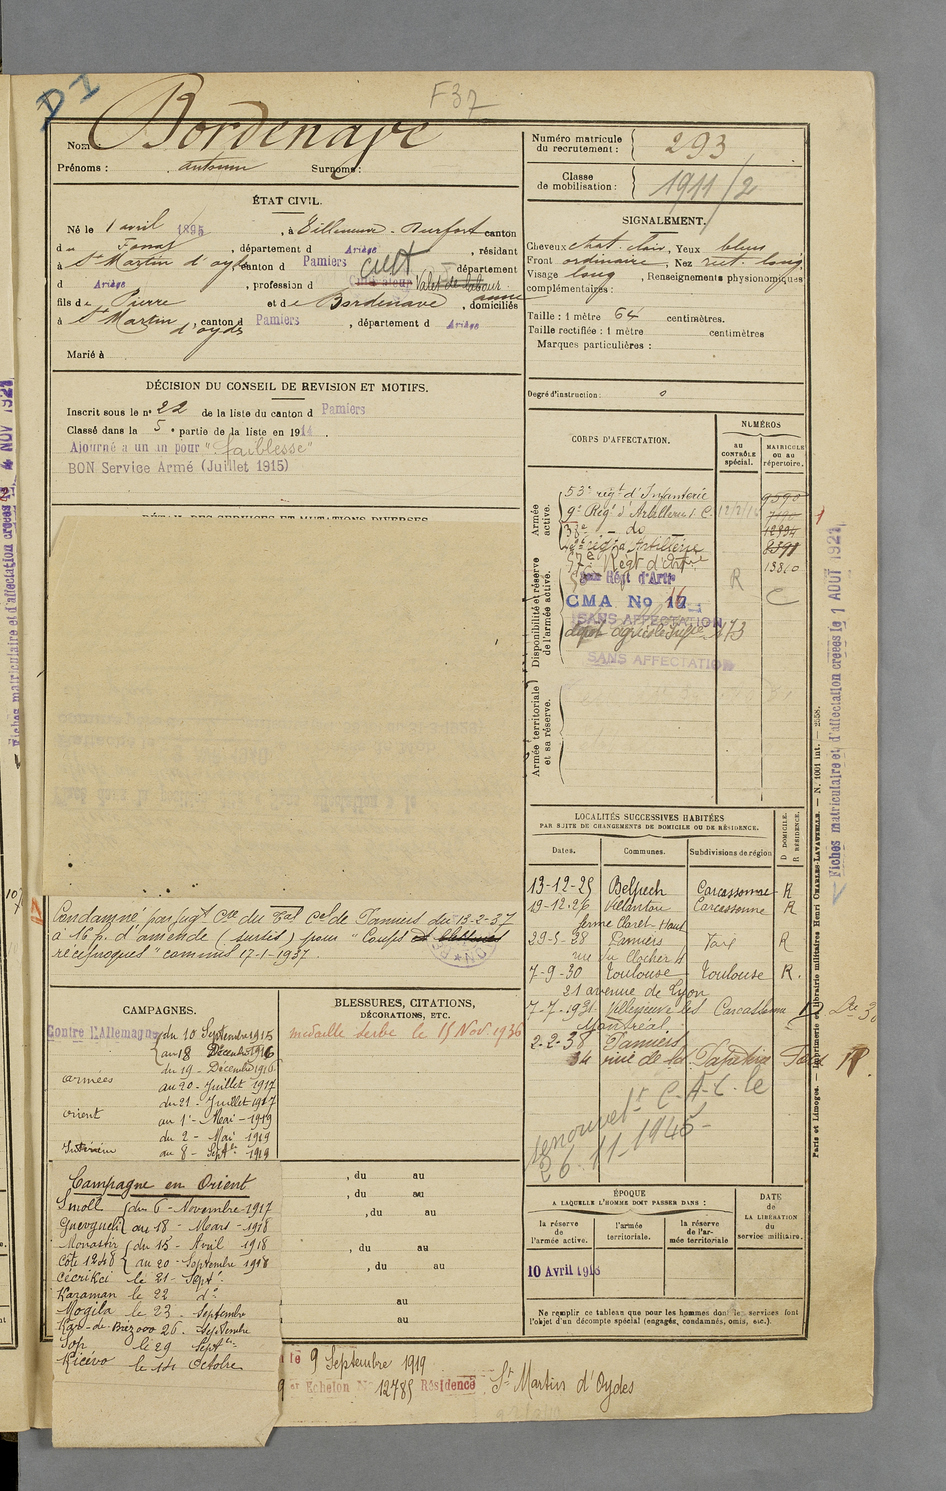 D I
F37
Nom Bordenave
Prénoms : antonin Surnoms :
ÉTAT CIVIL.
Né le 1 avril 1895, à Villeneuve-Durfort canton
du Fossat, département d Ariège, résidant
à St Martin d'oydes, canton d Pamiers, département
d Ariège, profession d Cultivateur Valet de labour cult
fils de Pierre et de Bordenave anne, domiciliés
à St Martin d'oydes, canton d Pamiers, département d Ariège
Marié à
DÉCISION DU CONSEIL DE REVISION ET MOTIFS.
Inscrit sous le n° 22 de la liste du canton d Pamiers
Classé dans la 5e partie de la liste en 1914.
Ajourné a un an pour "faiblesse"
BON Service Armé (Juillet 1915)
DÉTAIL DES SERVICES ET MUTATIONS DIVERSES
Condamné par jugt Cre du Tal Cel de Pamiers du 13-2-37
à 16 f. d'amende (sursis) pour "Coups et blessures
réciproques" commis 17-1-1937.
CAMPAGNES.
Contre L'Allemagne du 10 Septembre 1915
au 18 Décembre 1916
du 19 - Décembre 1916
armées au 20 - Juillet 1917
du 21 - Juillet 1917
orient au 1er - Mai - 1919
du 2 - Mai 1919
Intérieur au 8 - Septbre 1919
Campagne en Orient
Smoll du 6 - Novembre 1917
Guevgueli au 18 - Mars - 1918
Monastir du 15 - Avril 1918
Côte 1248 au 20 - Septembre 1918
Cécrikci le 21 - Sept.
Karaman le 22 do
Mogila le 23 - Septembre
Kar-de-Brezovo 26 - Septembre
Sop le 29 Septbre
Kicévo le 14 Octobre
BLESSURES, CITATIONS,
DÉCORATIONS, ETC.
médaille serbe le 15 Nov. 1936
, du au
, du au
, du au
, du au
, du au
au
au
le 9 Septembre 1919
er Echelon No 12785 Résidence St Martin d'Oydes
Numéro matricule
du recrutement : 293
Classe
de mobilisation : 1911/2
SIGNALEMENT.
Cheveux chat. clair, Yeux bleus
Front ordinaire, Nez rect. long,
Visage long, Renseignements physionomiques
complémentaires :
Taille : 1 mètre 64 centimètres.
Taille rectifiée : 1 mètre centimètres
Marques particulières :
Degré d'instruction : 0
CORPS D'AFFECTATION.
NUMÉROS
AU CONTRÔLE spécial.
MATRICULE ou au répertoire.
Armée active.
53e régt d'Infanterie
9e Régt d'Artillerie C.
38e - do
57e Régt d'Artrie
13810
Disponibilité et réserve de l'armée active.
Régt d'Artie
R
C
CMA No 17 16
SANS AFFECTATION
173
SANS AFFECTATION
Armée territoriale et sa réserve.
LOCALITÉS SUCCESSIVES HABITÉES
PAR SUITE DE CHANGEMENTS DE DOMICILE OU DE RÉSIDENCE.
Dates. Communes. Subdivisions de région D DOMICILE. R RÉSIDENCE.
13-12-25 Belpech Carcassonne R
19-12-26 Villautou Carcassonne R
ferme Claret-Haut
29-5-28 Pamiers Foix R
rue du Clocher 4
7-9-30 Toulouse Toulouse R.
21 avenue de Lyon
7-7-1931 Villeneuve les Montréal Carcassonne
2-2-38 Pamiers Foix R.
34 rue de la
renouvelt C-A-C. le
26.11-1945-
ÉPOQUE
A LAQUELLE L'HOMME DOIT PASSER DANS :
la réserve de l'armée active.
l'armée territoriale.
la réserve de l'armée territoriale
DATE de LA LIBÉRATION du service militaire.
10 Avril 1918
Ne remplir ce tableau que pour les hommes dont les services font
l'objet d'un décompte spécial (engagés, condamnés, omis, etc.).
Paris et Limoges. — Imprimerie et librairie militaires Henri CHARLES-LAVAUZELLE. — N. 1001 int. — 2558.
Fiches matriculaire et d'affectation creees le 1 AOUT 1927
Fiches matriculaire et d'affectation creees le 4 NOV 1927